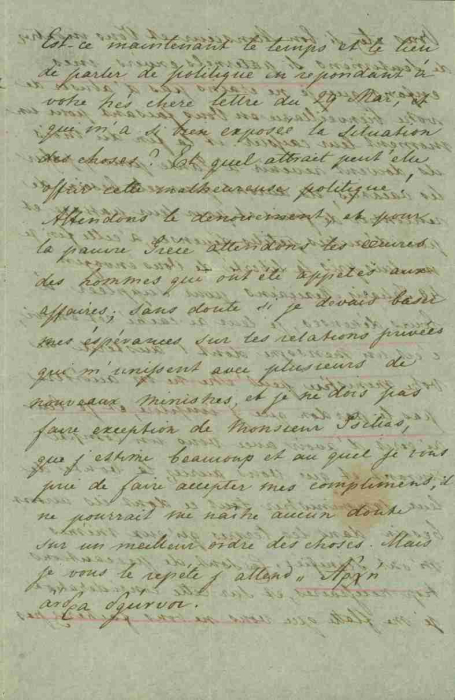 Est-ce maintenant le temps et le lieu
de parler de politique en repondant à
votre tres chere lettre du 29 Mai, et
qui m'a si bien exposée la situation
des choses? Est quel attrait peut être
offrir cette malheureuse politique,
Attendons le denouement, et pour
la pauvre Grece attendons les oeuvres
des hommes qui ont été appelés aux
affaires; sans doute si je devais baser
mes éspérances sur les relations privées
qui m'unissent avec plusieurs de
nouveaux ministres, et je ne dois pas
faire exception de Monsieur
que j'estime beaucoup et au quel je vous
prie de faire accepter mes compliment, il
ne pourrait me naitre aucun doute
sur un meilleur ordre des choses. Mais
je vous le repéte j'attend „ Ἀρχὴ